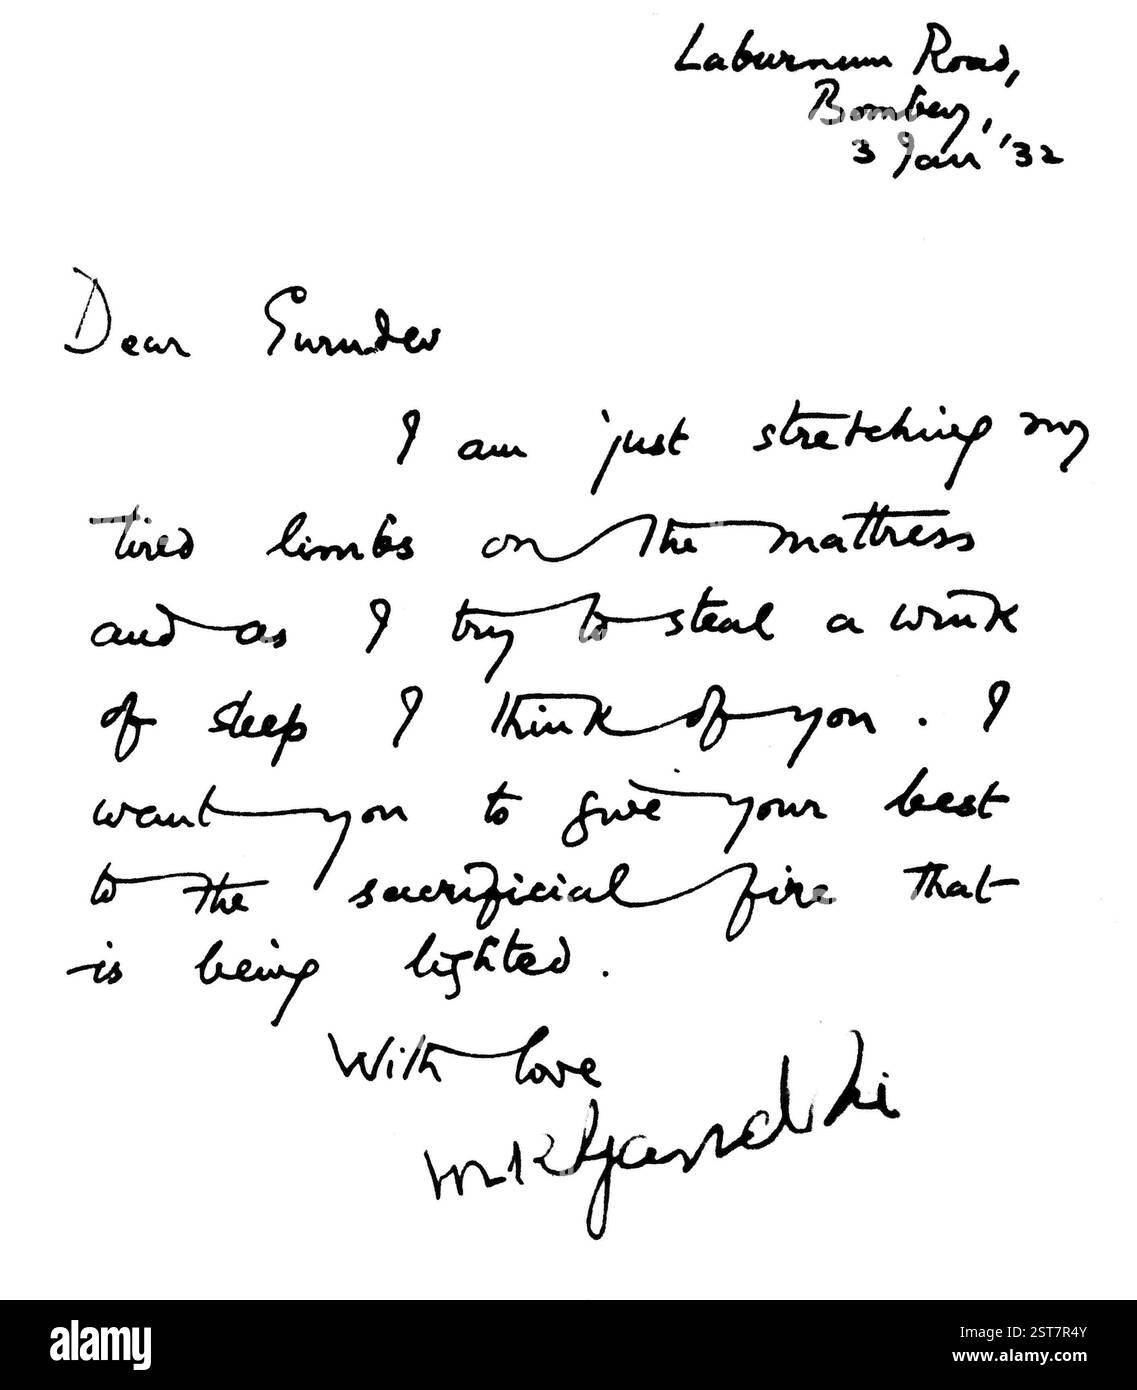 Laburnum Road,
Bombay,
3 Jan '32
Dear Gurudev
I am just stretching my
tired limbs on the mattress
and as I try to steal a wink
of sleep I think of you. I
want you to give your best
to the sacrificial fire that
is being lighted.
With love
MKGandhi
alamy
Image ID: 2ST7R4Y
www.alamy.com